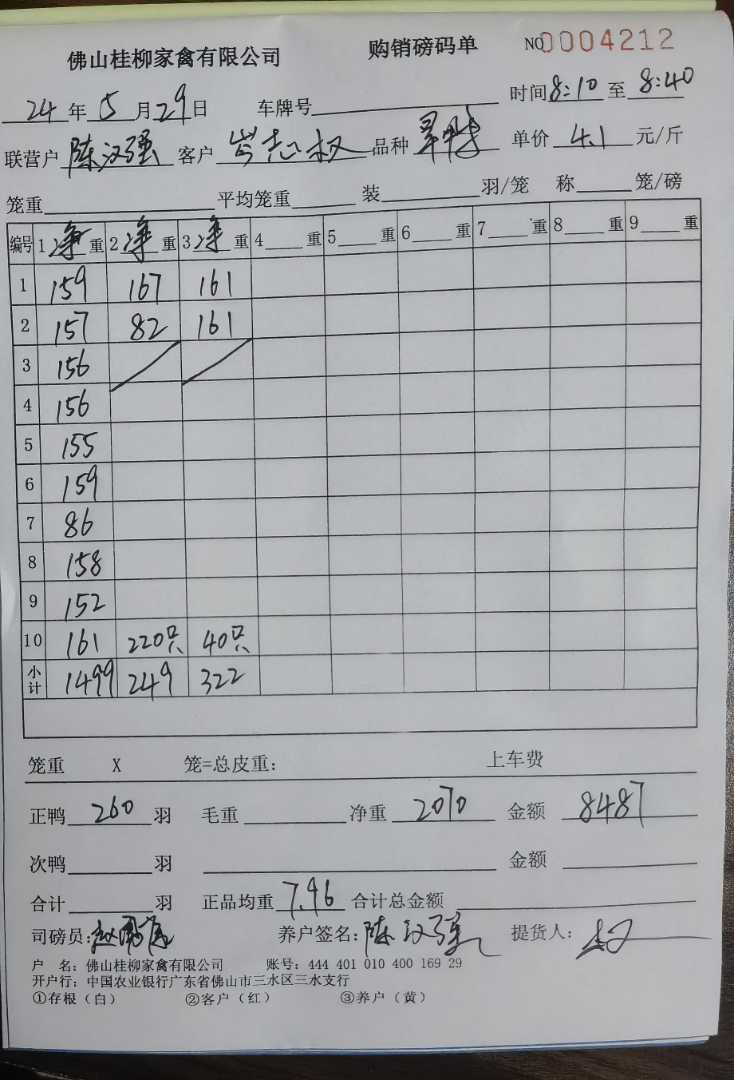 佛山桂柳家禽有限公司 购销磅码单 NO 0004212
24年5月29日 车牌号 时间8:10至8:40
联营户 陈汉强 客户 岑志权 品种 单价 4.1 元/斤
笼重 平均笼重 装 羽/笼 称 笼/磅
编号 1 净 重 2 净 重 3 净 重 4 重 5 重 6 重 7 重 8 重 9 重
1 159 167 161
2 157 82 161
3 156
4 156
5 155
6 159
7 86
8 158
9 152
10 161 220只 40只
小计 1499 249 322
笼重 X 笼=总皮重: 上车费
正鸭 260 羽 毛重 净重 2070 金额 8487
次鸭 羽 金额
合计 羽 正品均重 7.96 合计总金额
司磅员: 养户签名: 陈汉强 提货人:
户 名: 佛山桂柳家禽有限公司 账号: 444 401 010 400 169 29
开户行: 中国农业银行广东省佛山市三水区三水支行
①存根(白) ②客户(红) ③养户(黄)